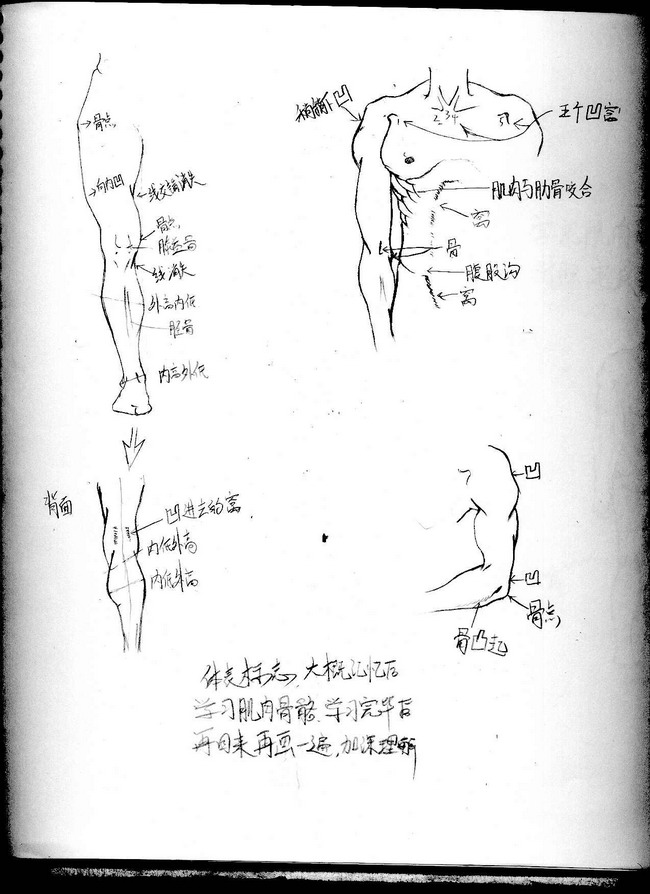 骨点
向内凹
线交错消失
骨点
胫骨
线消失
外高内低
胫骨
内高外低
稍撇凹
1
2
3
4
5
五个凹窝
肌肉与肋骨咬合
窝
骨
腹股沟
窝
背面
凹进去的窝
内低外高
内低外高
凹
凹
骨点
骨凸起
体表标志、大概记忆后
学习肌肉骨骼、学习完毕后
再回来再画一遍,加深理解